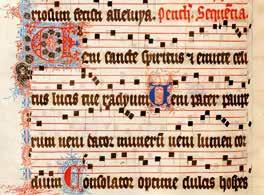 riosum fecisti alleluya. Sequētia
Veni sancte spiritus et emitte celi
tus lucis tue radyum Veni pater paupe
rum veni dator munerū veni lumen cor
dium Consolator optime dulcis hospes